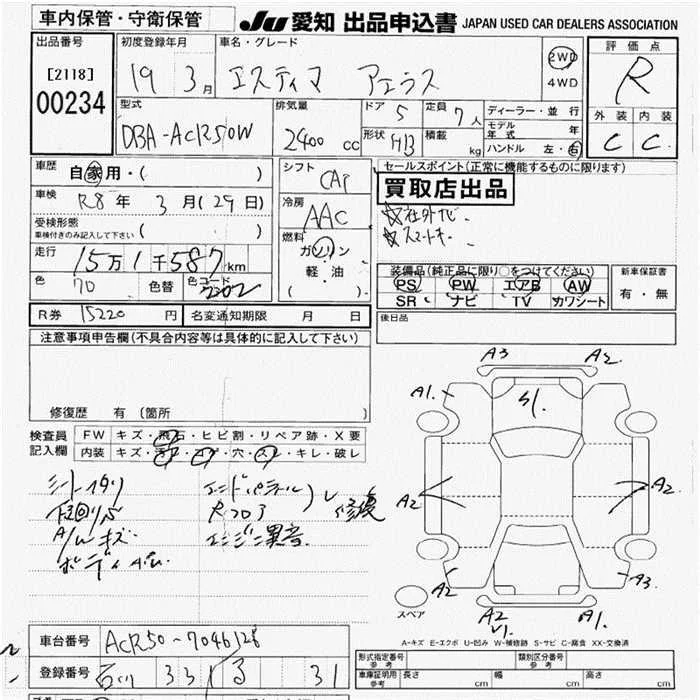 車内保管・守衛保管
JU 愛知 出品申込書 JAPAN USED CAR DEALERS ASSOCIATION
出品番号
[2118]
00234
初度登録年月
19 3月
車名・グレード
エスティマ アエラス
2WD
4WD
評価点
R
外装 内装
C C
型式
DBA-ACR50W
排気量
2400 cc
ドア 5
形状 HB
定員 7人
積載 kg
ディーラー・並行
モデル年式 年
ハンドル 左・右
車歴 自家用・( )
車検 R8年 3月(29日)
受検形態
車検付きのみ記入して下さい ( )
走行 15万1千587km
色 70 色替 色コード
シフト CAT
冷房 AAC
燃料
ガソリン
軽・油
( )
セールスポイント(正常に機能するものに限ります)
買取店出品
☆社外ナビ.
☆スマートキー.
装備品(純正品に限り○をつけてください)
PS PW エアB AW
SR ナビ TV カワシート
新車保証書
有・無
R券 15220円 名変通知期限 月 日
後日品
注意事項申告欄(不具合内容等は具体的に記入して下さい)
修復歴 有 (箇所 )
検査員
記入欄
FW キズ・飛石・ヒビ割・リペア跡・X要
内装 キズ・汚れ・コゲ・穴・スレ・キレ・破レ
シートスタリ
下回りサビ
A/Wキズ
エンジン異音.
修復
A3 A2.
A1. S1.
A2 A2
A2 A3
A2 A1.
スペア
A-キズ E-エクボ U-凹み W-補修跡 S-サビ C-腐食 XX-交換済
車台番号 ACR50-7046128
登録番号 石川 331 る 31
形式指定番号
参考
類別区分番号
参考
車庫証明用
参考
長さ cm 幅 cm 高さ cm